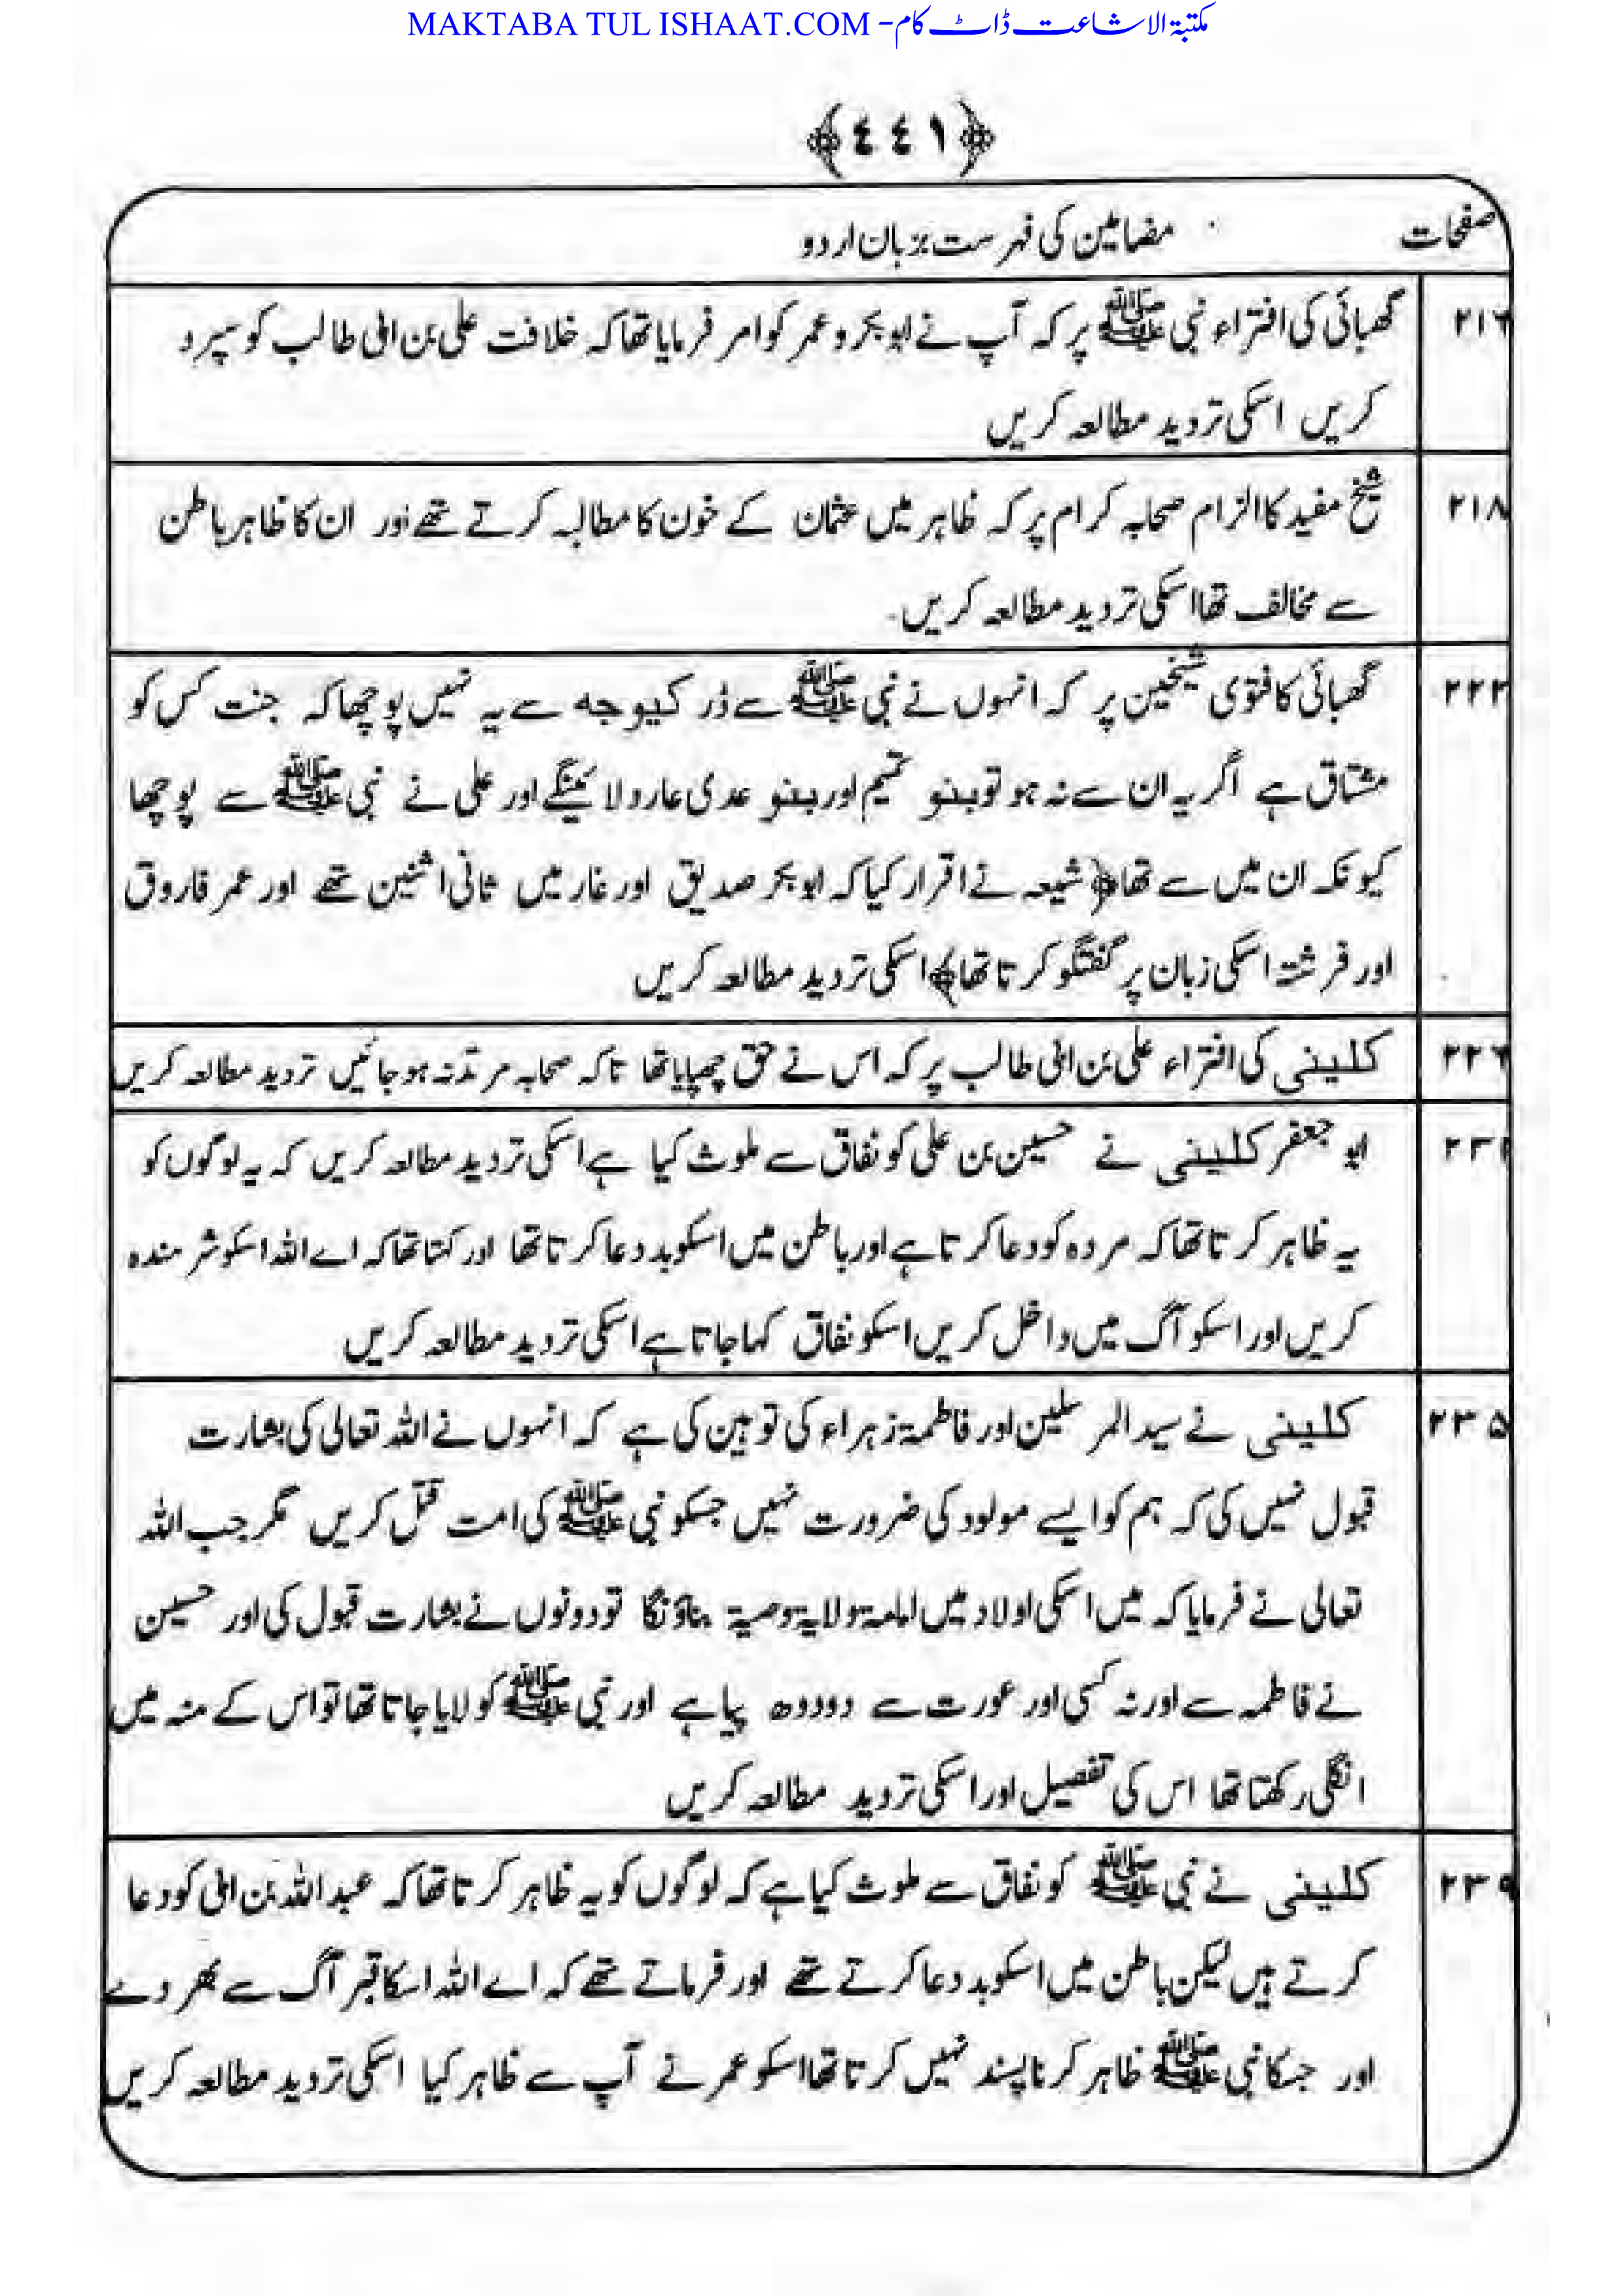 MAKTABA TUL ISHAAT.COM - مکتبۃ الاشاعت ڈاٹ کام
﴿٤٤١﴾
صفحات مضامین کی فہرست بزبان اردو
٢١٦ گھبائی کی افتراء نبی ﷺ پر کہ آپ نے ابوبکر و عمر کو امر فرمایا تھا کہ خلافت علی بن ابی طالب کو سپرد
کریں اسکی تردید مطالعہ کریں
٢١٨ شیخ مفید کا الزام صحابہ کرام پر کہ ظاہر میں عثمان کے خون کا مطالبہ کرتے تھے اور ان کا ظاہر باطن
سے مخالف تھا اسکی تردید مطالعہ کریں
٢٢٢ گھبائی کا فتوی شیخین پر کہ انہوں نے نبی ﷺ سے ڈر کیوجہ سے یہ نہیں پوچھا کہ جنت کس کو
مشتاق ہے اگر یہ ان سے نہ ہو تو بنو تمیم اور بنو عدی عار دلائینگے اور علی نے نبی ﷺ سے پوچھا
کیونکہ ان میں سے تھا ﴿شیعہ نے اقرار کیا کہ ابوبکر صدیق اور غار میں ثانی اثنین تھے اور عمر فاروق
اور فرشتہ اسکی زبان پر گفتگو کرتا تھا﴾ اسکی تردید مطالعہ کریں
٢٢٦ کلینی کی افتراء علی بن ابی طالب پر کہ اس نے حق چھپایا تھا تاکہ صحابہ مرتد نہ ہو جائیں تردید مطالعہ کریں
٢٣١ ابو جعفر کلینی نے حسین بن علی کو نفاق سے ملوث کیا ہے اسکی تردید مطالعہ کریں کہ یہ لوگوں کو
یہ ظاہر کرتا تھا کہ مردہ کو دعا کرتا ہے اور باطن میں اسکو بددعا کرتا تھا اور کہتا تھا کہ اے اللہ اسکو شرمندہ
کریں اور اسکو آگ میں داخل کریں اسکو نفاق کہا جاتا ہے اسکی تردید مطالعہ کریں
٢٣٥ کلینی نے سید المرسلین اور فاطمۃ زہراء کی توہین کی ہے کہ انہوں نے اللہ تعالی کی بشارت
قبول نہیں کی کہ ہم کو ایسے مولود کی ضرورت نہیں جسکو نبی ﷺ کی امت قتل کریں مگر جب اللہ
تعالی نے فرمایا کہ میں اسکی اولاد میں امامۃ ولایۃ وصیۃ بناؤنگا تو دونوں نے بشارت قبول کی اور حسین
نے فاطمہ سے اور نہ کسی اور عورت سے دودوھ پیا ہے اور نبی ﷺ کو لایا جاتا تھا تو اس کے منہ میں
انگلی رکھتا تھا اس کی تفصیل اور اسکی تردید مطالعہ کریں
٢٣٩ کلینی نے نبی ﷺ کو نفاق سے ملوث کیا ہے کہ لوگوں کو یہ ظاہر کرتا تھا کہ عبد اللہ بن ابی کو دعا
کرتے ہیں لیکن باطن میں اسکو بددعا کرتے تھے اور فرماتے تھے کہ اے اللہ اسکا قبر آگ سے بھر دے
اور جسکا نبی ﷺ ظاہر کرنا پسند نہیں کرتا تھا اسکو عمر نے آپ سے ظاہر کیا اسکی تردید مطالعہ کریں